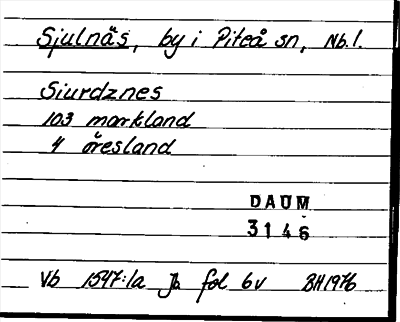 Sjulnäs, by i Piteå sn, Nb.l.
Siurdznes
103 markland
4 öresland
DAUM
3146
Vb 1547:1a Jb fol 6v BH1976